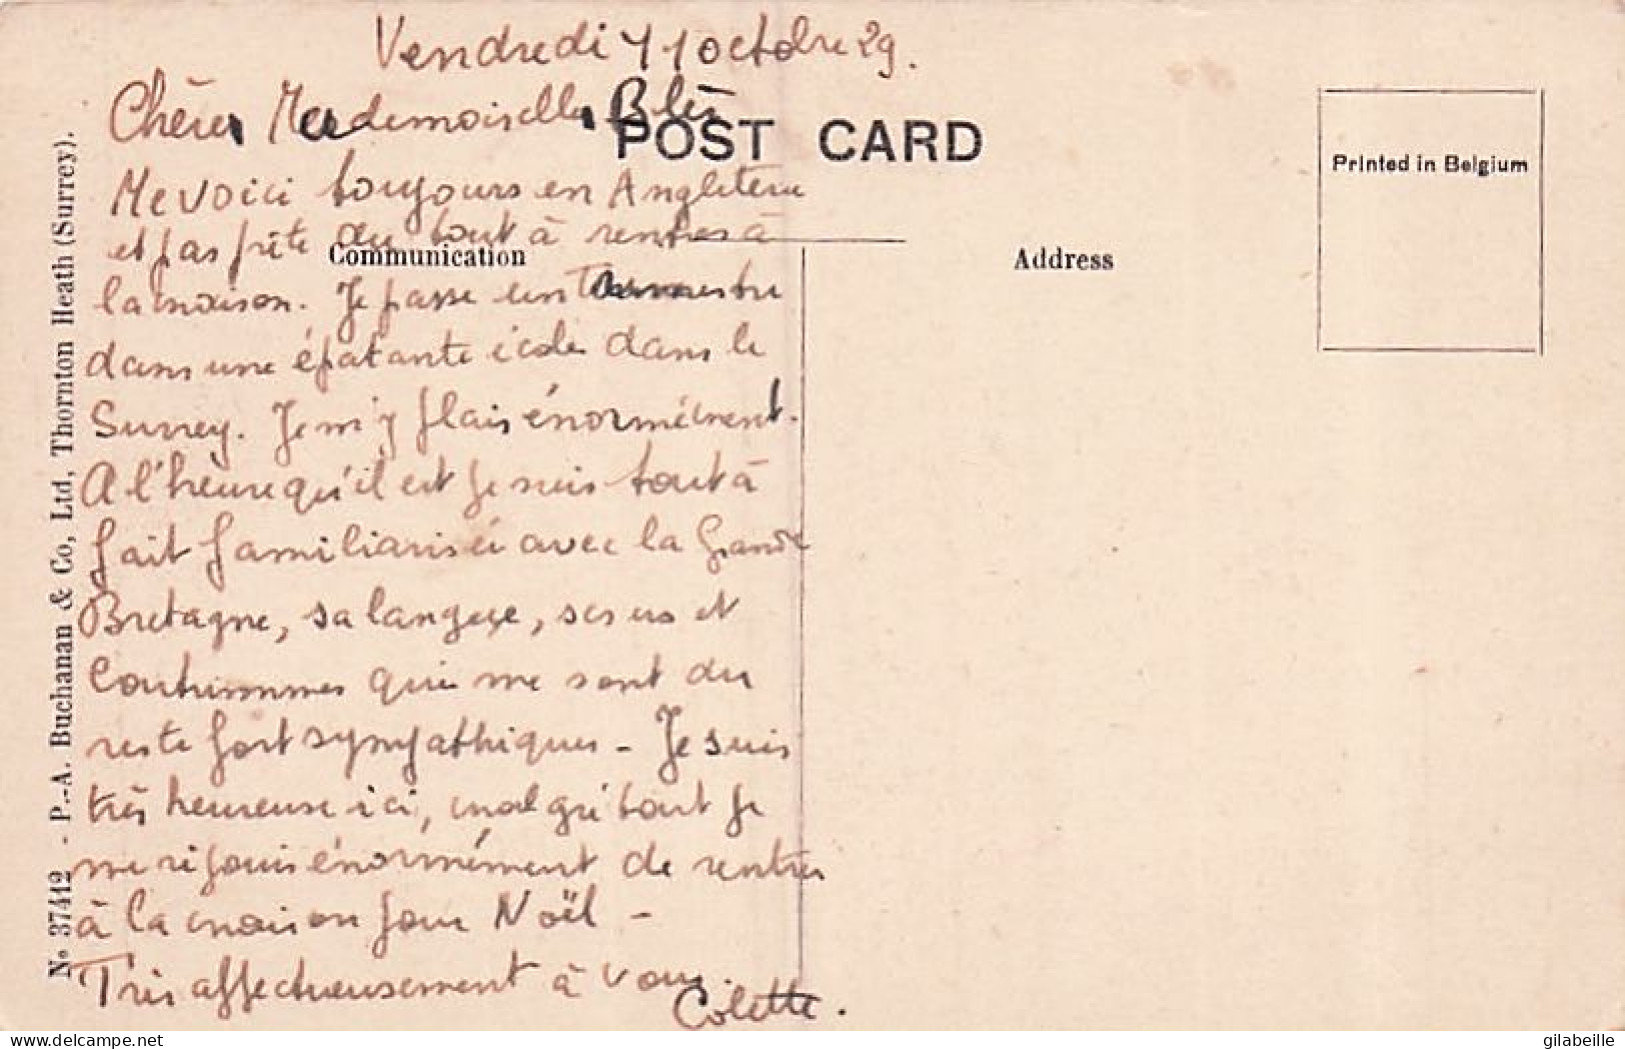 Vendredi 11 octobre 29.
Chère Mademoiselle
POST CARD
Printed in Belgium
Me voici toujours en Angleterre
et pas prête du tout à rentrer à
Communication
Address
la maison. Je passe un
dans une épatante école dans le
Surrey. Je m'y plais énormément.
A l'heure qu'il est je suis tout à
fait familiarisée avec la Grande
Bretagne, sa langue, ses us et
Coutummes qui me sont du
reste fort sympathiques - Je suis
très heureuse ici, malgré tout je
me réjouis énormément de rentrer
à la maison pour Noël -
Très affectueusement à vous.
Colette.
No 37412 - P.-A. Buchanan & Co, Ltd, Thornton Heath (Surrey).
www.delcampe.net
gilabeille